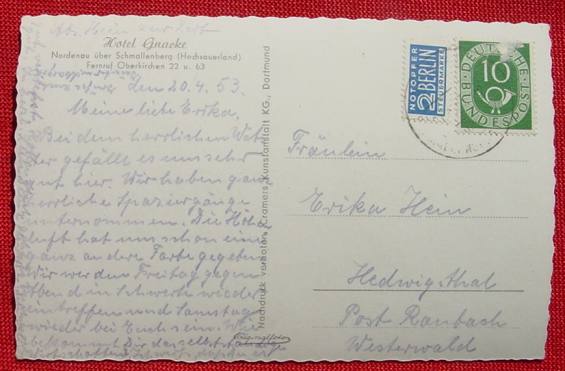 Abs. Hein
Hotel Gnacke
Nordenau über Schmallenberg (Hochsauerland)
Fernruf Oberkirchen 22 u. 63
den 20.4.53.
Meine liebe Erika,
Bei dem herrlichen Wet-
ter gefällt es uns sehr
gut hier. Wir haben ganz
herrliche Spaziergänge
unternommen. Die Höhen-
luft hat uns schon eine
ganz andere Farbe gegeben.
Wir werden Freitag gegen
Abend in Schwerte wieder
eintreffen und Samstag
wieder bei Euch sein. Wie
bekommt Dir das selbständige
Nachdruck verboten Cramers Kunstanstalt KG., Dortmund
Originalfoto
NOTOPFER
2 BERLIN
STEUERMARKE
DEUTSCHE
BUNDESPOST
10
Fräulein
Erika Hein
Hedwigsthal
Post Raubach
Westerwald